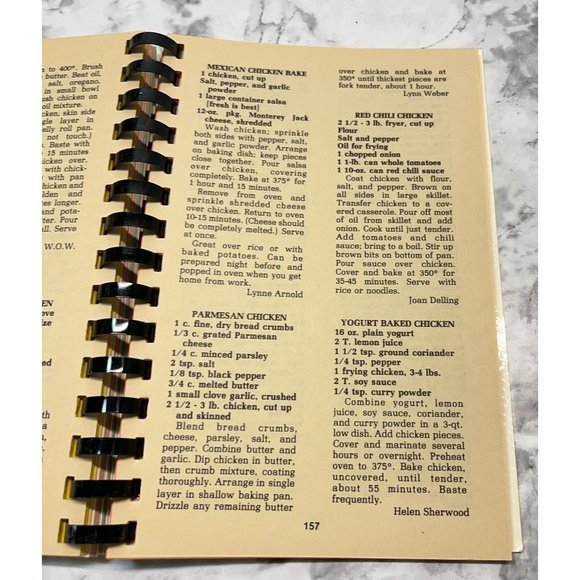 n to 400°. Brush
butter. Best oil,
salt, oregano,
in small bowl
ush chicken on
oil mixture.
n, skin side
gle layer in
elly roll pan.
not touch.)
s. Baste with
15 minutes
hicken over.
with chick-
with pan
hicken and
lden and
es longer.
and pota-
tter. Pour
ll. Serve
W.O.W.
EN
ove
ize
MEXICAN CHICKEN BAKE
1 chicken, cut up
Salt, pepper, and garlic
powder
1 large container salsa
[fresh is best]
12-oz. pkg. Monterey Jack
cheese, shredded
Wash chicken; sprinkle
both sides with pepper, salt,
and garlic powder. Arrange
on baking dish; keep pieces
close together. Pour salsa
over chicken, covering
completely. Bake at 375° for
1 hour and 15 minutes.
Remove from oven and
sprinkle shredded cheese
over chicken. Return to oven
10-15 minutes. (Cheese should
be completely melted.) Serve
at once.
Great over rice or with
baked potatoes. Can be
prepared night before and
popped in oven when you get
home from work.
Lynne Arnold
PARMESAN CHICKEN
1 c. fine, dry bread crumbs
1/3 c. grated Parmesan
cheese
1/4 c. minced parsley
2 tsp. salt
1/8 tsp. black pepper
3/4 c. melted butter
1 small clove garlic, crushed
2 1/2 - 3 lb. chicken, cut up
and skinned
Blend bread crumbs,
cheese, parsley, salt, and
pepper. Combine butter and
garlic. Dip chicken in butter,
then crumb mixture, coating
thoroughly. Arrange in single
layer in shallow baking pan.
Drizzle any remaining butter
over chicken and bake at
350° until thickest pieces are
fork tender, about 1 hour.
Lynn Weber
RED CHILI CHICKEN
2 1/2 - 3 lb. fryer, cut up
Flour
Salt and pepper
Oil for frying
1 chopped onion
1 1-lb. can whole tomatoes
1 10-oz. can red chili sauce
Coat chicken with flour,
salt, and pepper. Brown on
all sides in large skillet.
Transfer chicken to a cov-
ered casserole. Pour off most
of oil from skillet and add
onion. Cook until just tender.
Add tomatoes and chili
sauce; bring to a boil. Stir up
brown bits on bottom of pan.
Pour sauce over chicken.
Cover and bake at 350° for
35-45 minutes. Serve with
rice or noodles.
Joan Delling
YOGURT BAKED CHICKEN
16 oz. plain yogurt
2 T. lemon juice
1 1/2 tsp. ground coriander
1/4 tsp. pepper
1 frying chicken, 3-4 lbs.
2 T. soy sauce
1/4 tsp. curry powder
Combine yogurt, lemon
juice, soy sauce, coriander,
and curry powder in a 3-qt.
low dish. Add chicken pieces.
Cover and marinate several
hours or overnight. Preheat
oven to 375°. Bake chicken,
uncovered, until tender,
about 55 minutes. Baste
frequently.
Helen Sherwood
157